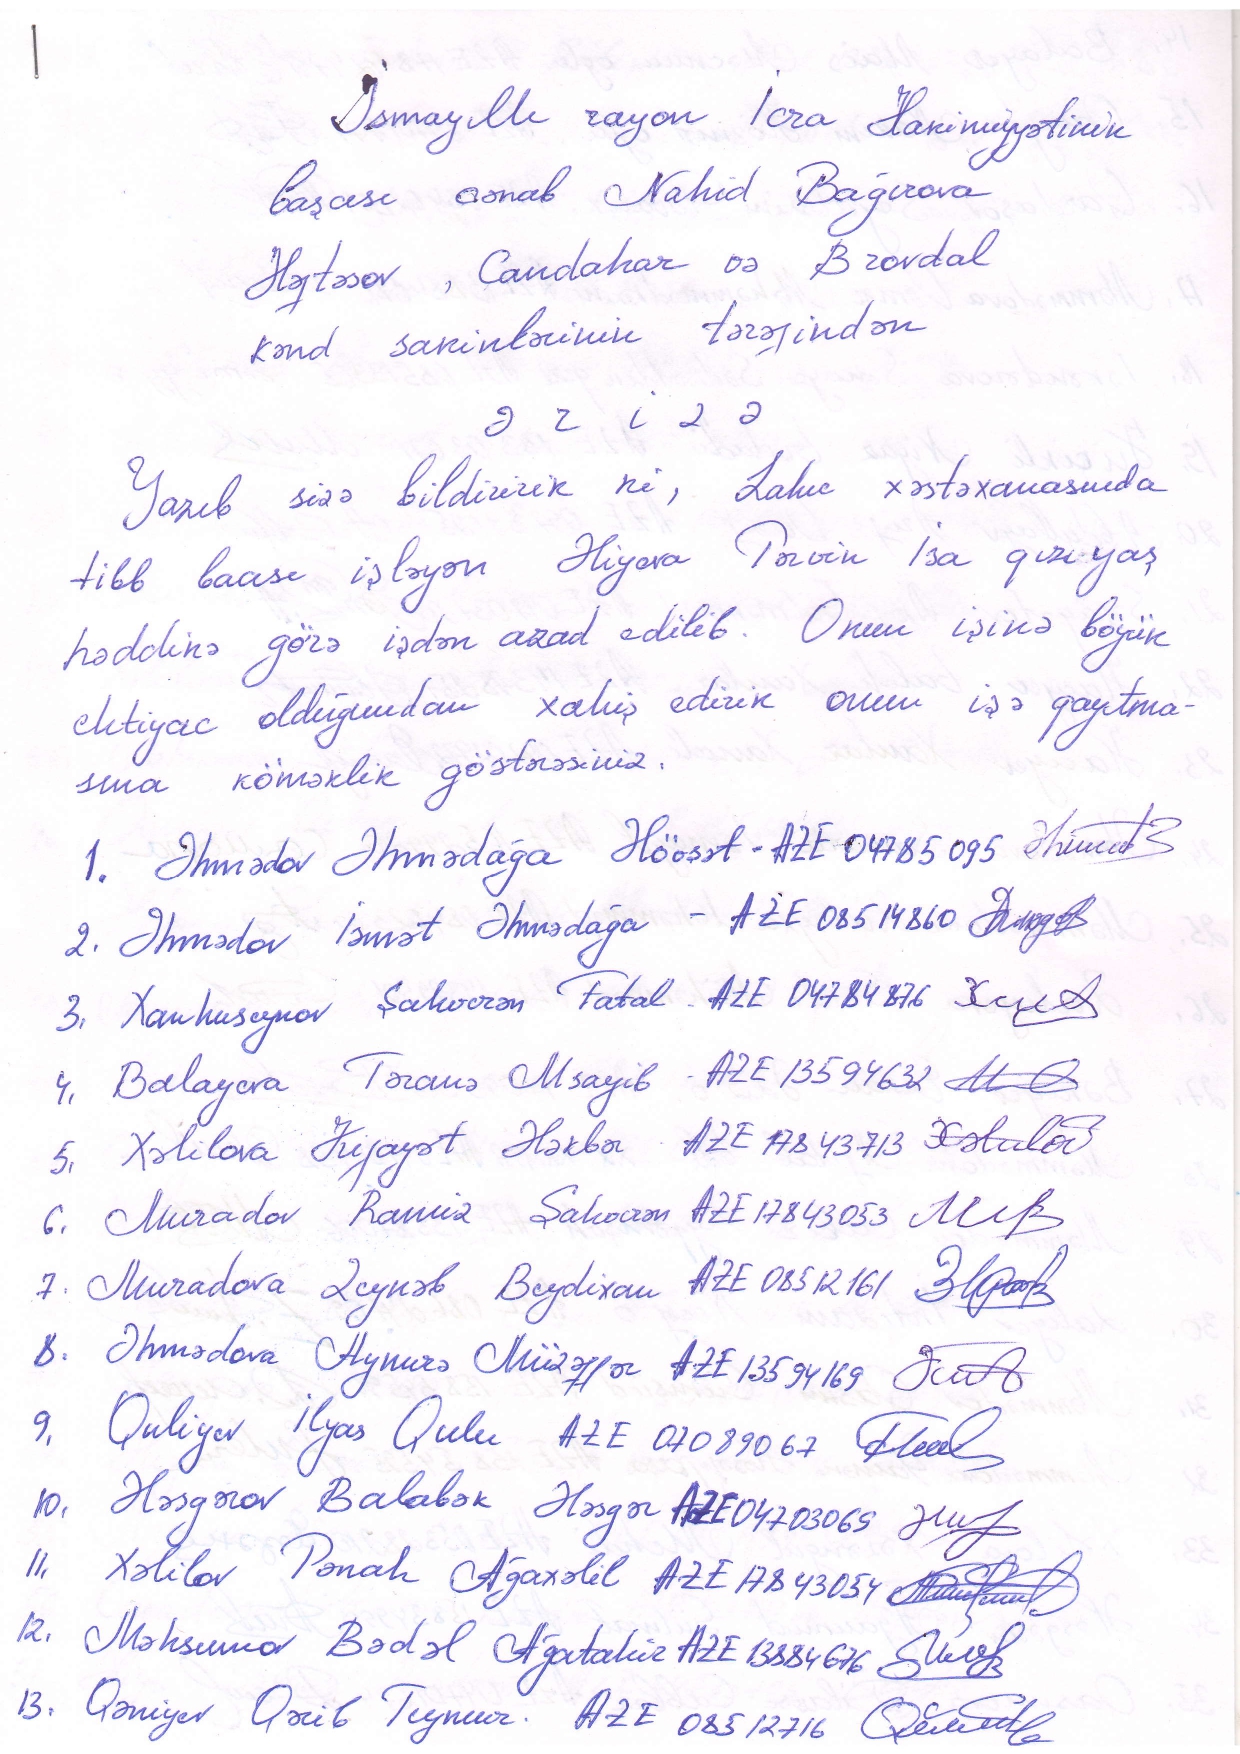 İsmayıllı rayon İcra Hakimiyyətinin
başçısı cənab Nahid Bağırova
Həftəsov, Candahar və Brovdal
kənd sakinlərinin tərəfindən
Ə r i z ə
Yazıb sizə bildiririk ki, Lahıc xəstəxanasında
tibb bacısı işləyən Əliyeva Pərvin İsa qızı yaş
həddinə görə işdən azad edilib. Onun işinə böyük
ehtiyac olduğundan xahiş edirik onun işə qayıtma-
sına köməklik göstərəsiniz.
1. Əhmədov Əhmədağa Höösət - AZE 04785095
2. Əhmədov İsmət Əhmədağa - AZE 08514860
3. Xanhuseynov Şahvərən Fatal - AZE 04784876
4. Balayeva Təranə Msayib - AZE 13594632
5. Xəlilova Kifayət Ələkbər AZE 17843713
6. Muradov Ramiz Şahvərən AZE 17843053
7. Muradova Zeynəb Beydixan AZE 08512161
8. Əhmədova Aynurə Müzəffər AZE 13594169
9. Quliyev İlyas Qulu AZE 07089067
10. Həsgərov Balabək Həsgər AZE 04703069
11. Xəlilov Pənah Ağaxəlil AZE 17843054
12. Məhsumov Bədəl Ağatahir AZE 13884676
13. Qəniyev Qərib Teymur. AZE 08512716